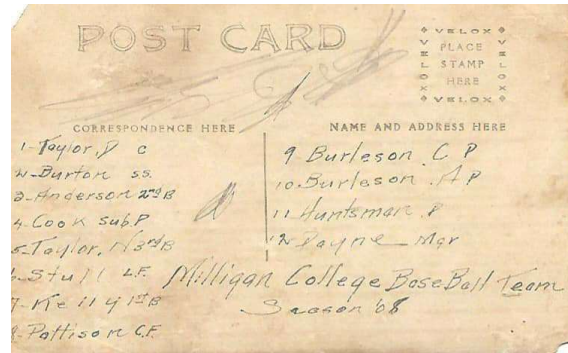 POST CARD
VELOX
VELOX
PLACE
STAMP
HERE
VELOX
VELOX
CORRESPONDENCE HERE
NAME AND ADDRESS HERE
1-Taylor, D C
2-Burton SS.
3-Anderson 2nd B
4-Cook Sub P
5-Taylor, N 3rd B
6-Stull L.F.
7-Kelly 1st B
8-Pattison C.F.
9 Burleson C P
10-Burleson A P
11 Huntsman P
12 Payne Mgr
Milligan College BaseBall Team
Season '08